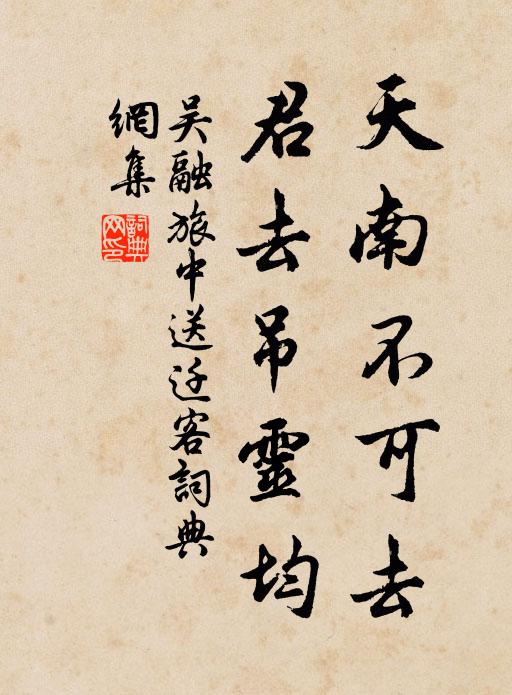 天南不可去
君去吊靈均
吳融旅中送迁客詞典
網集
詞典
网印